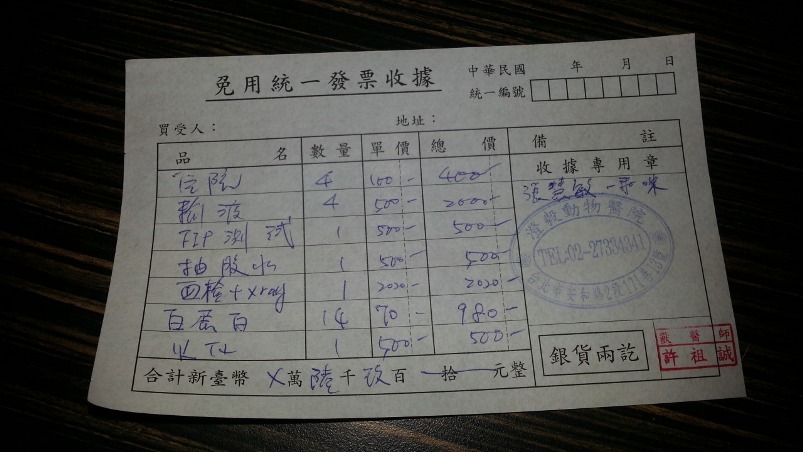 免用統一發票收據
中華民國 年 月 日
統一編號
買受人： 地址：
品名 數量 單價 總價 備註
收據專用章
住院 4 100- 400-
輸液 4 500- 2000-
FIP測試 1 500- 500-
抽腹水 1 500- 500
血檢+xray 1 2020- 2020-
白蛋白 14 70 980-
1 500- 500-
張慧敏
動物醫院
TEL:02-27334341
台北市
合計新臺幣 X萬陸千玖百 拾 元整
銀貨兩訖
獸醫師
許祖誠